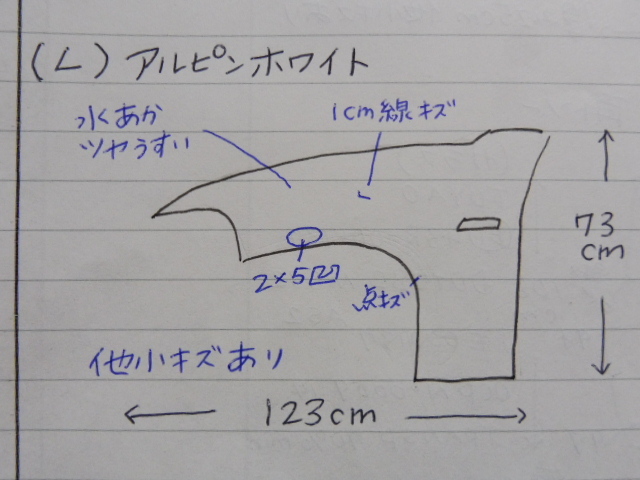 (L) アルピンホワイト
水あか
ツヤうすい
1cm線キズ
73
cm
2×5凹
点キズ
他小キズあり
123cm